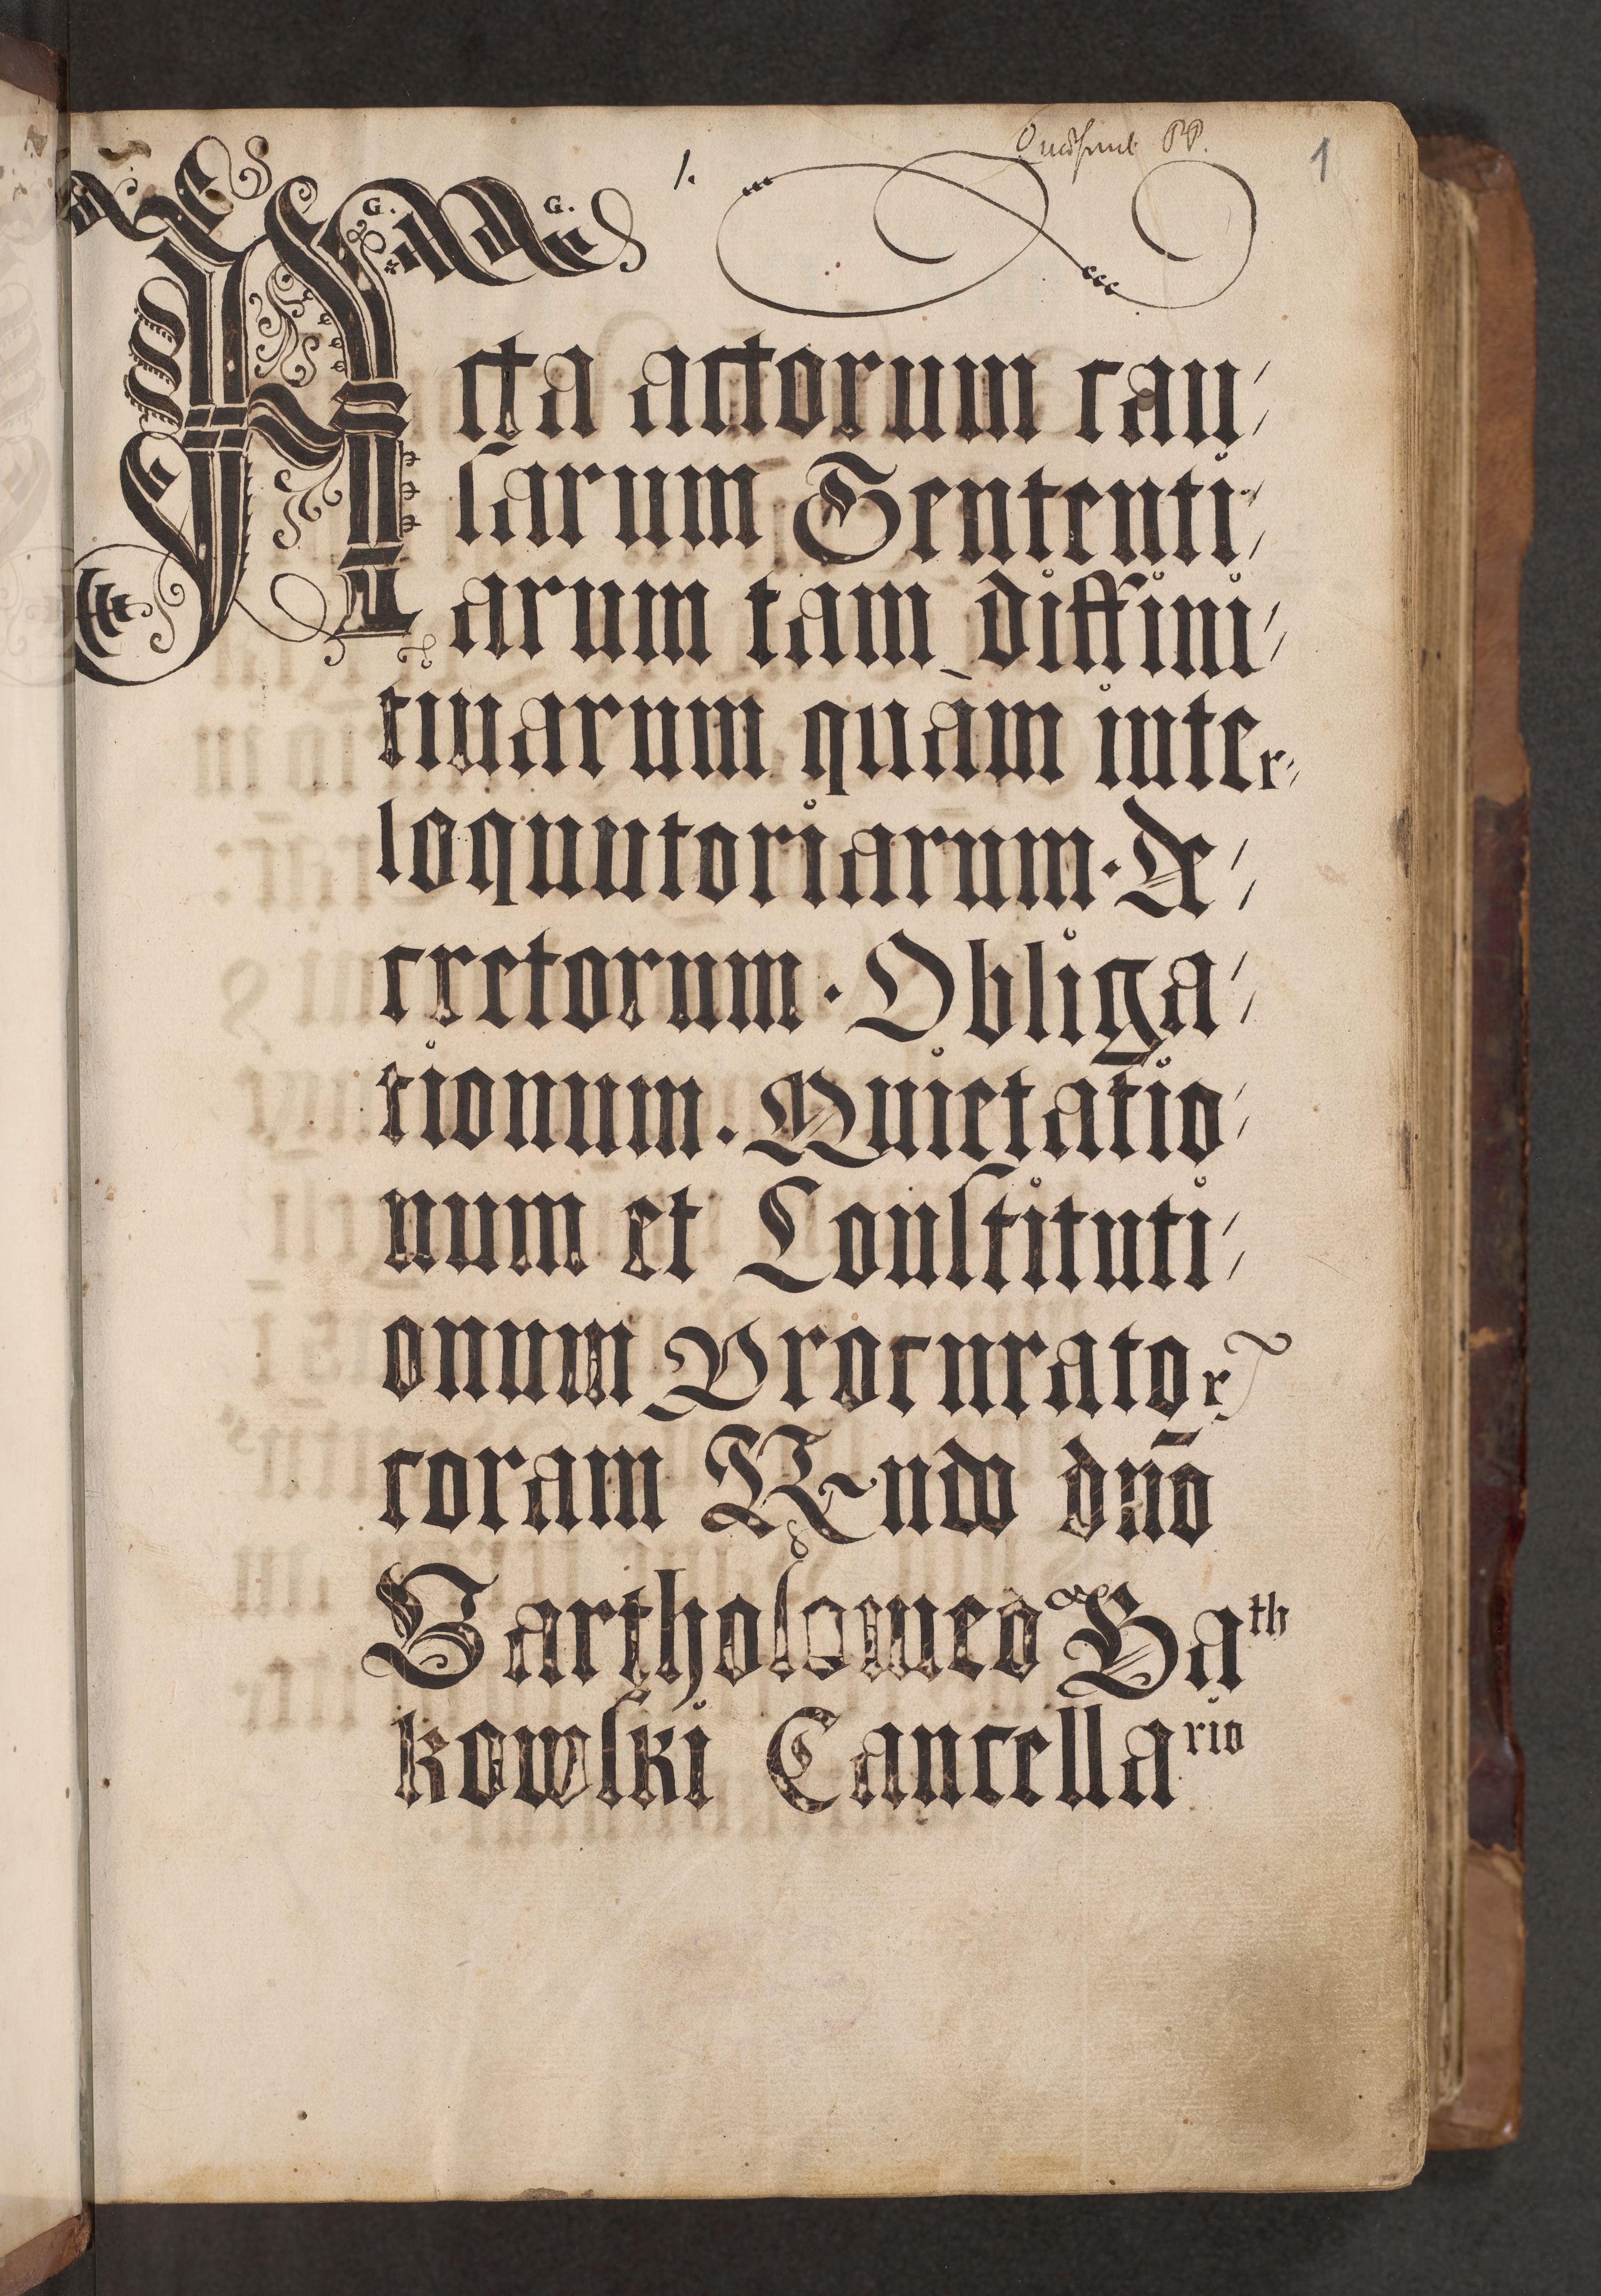 1.
1
G. G.
Acta actorum cau/
sarum Sententi/
arum tam diffini/
tiuarum quàm inter/
loquutoriarum · De/
cretorum · Obliga/
tionum · Quietatio/
num et Constituti/
onum Procurator
coram R-ndo dño
Bartholomeo Gath
kowski Cancellario